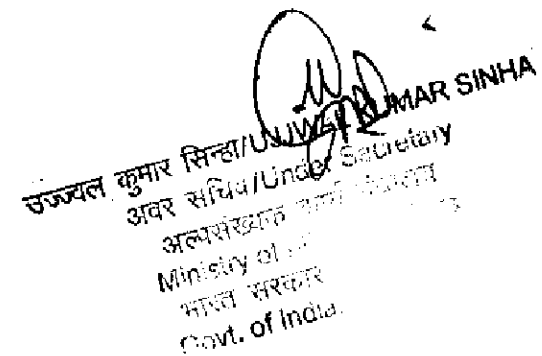 उज्ज्वल कुमार सिन्हा/UJJWAL KUMAR SINHA
अवर सचिव/Under Secretary
अल्पसंख्यक कार्य मंत्रालय
Ministry of
भारत सरकार
Govt. of India